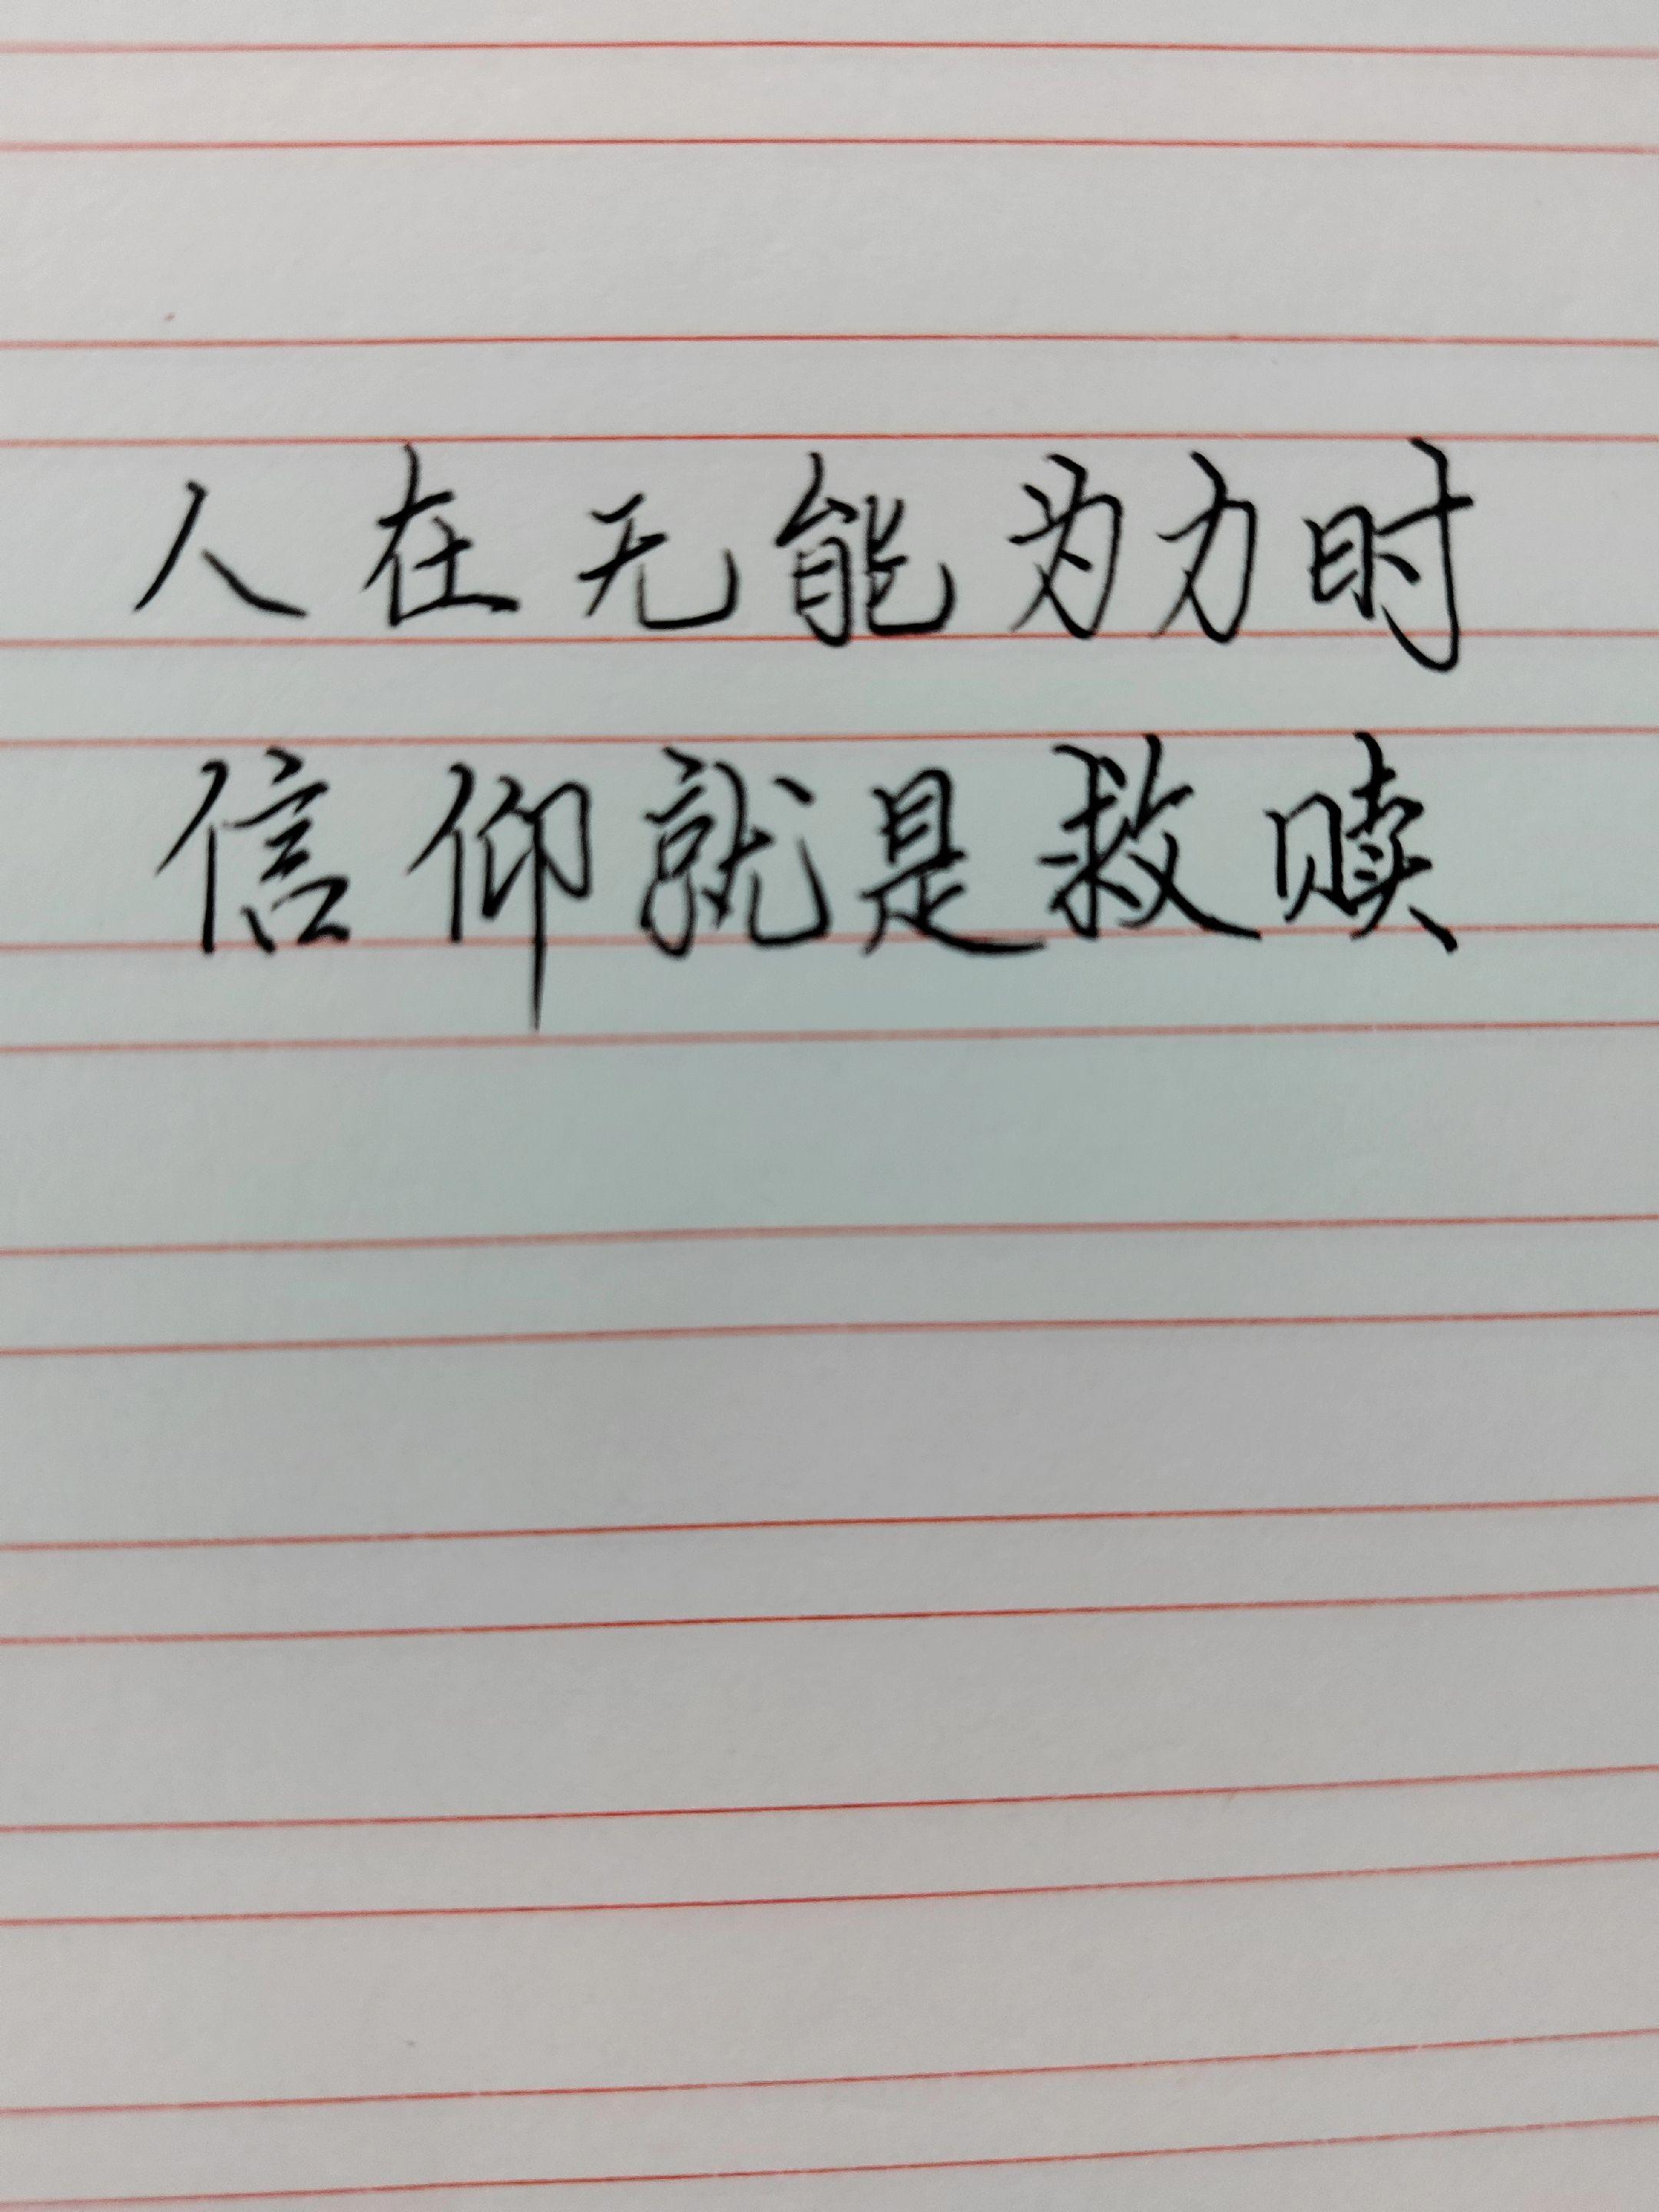 人在无能为力时
信仰就是救赎